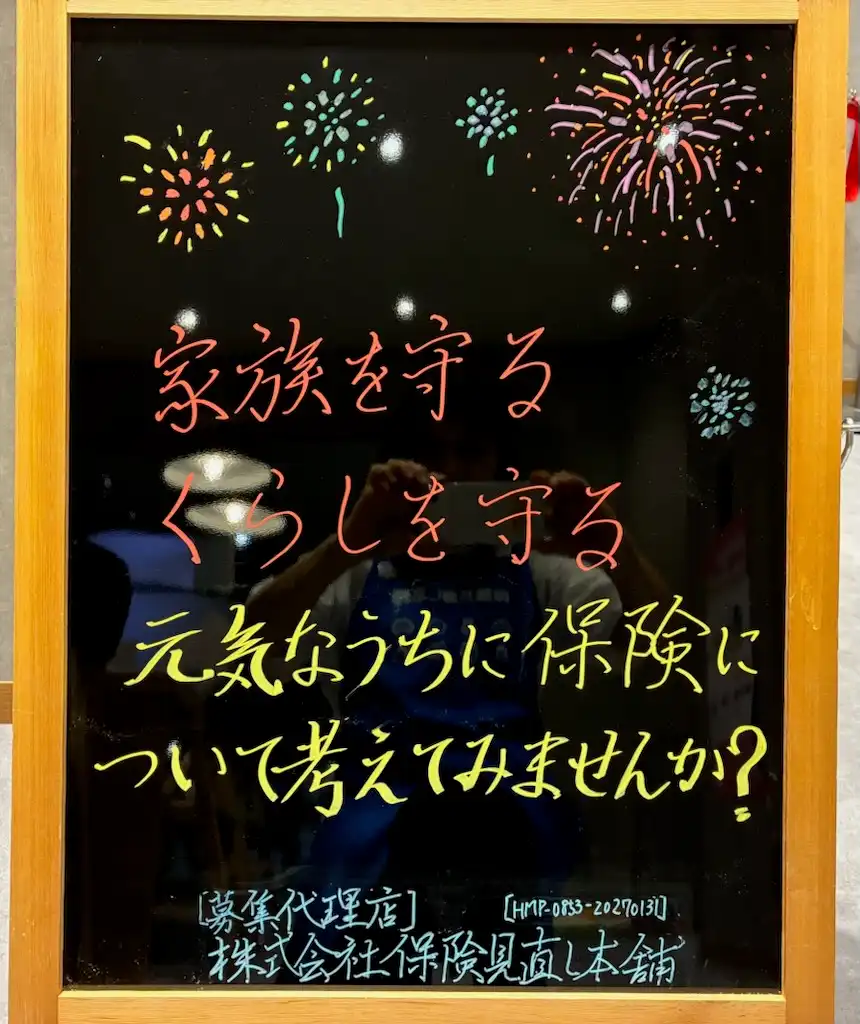 家族を守る
くらしを守る
元気なうちに保険に
ついて考えてみませんか?
[募集代理店] [HMP-0853-20270131]
株式会社保険見直し本舗